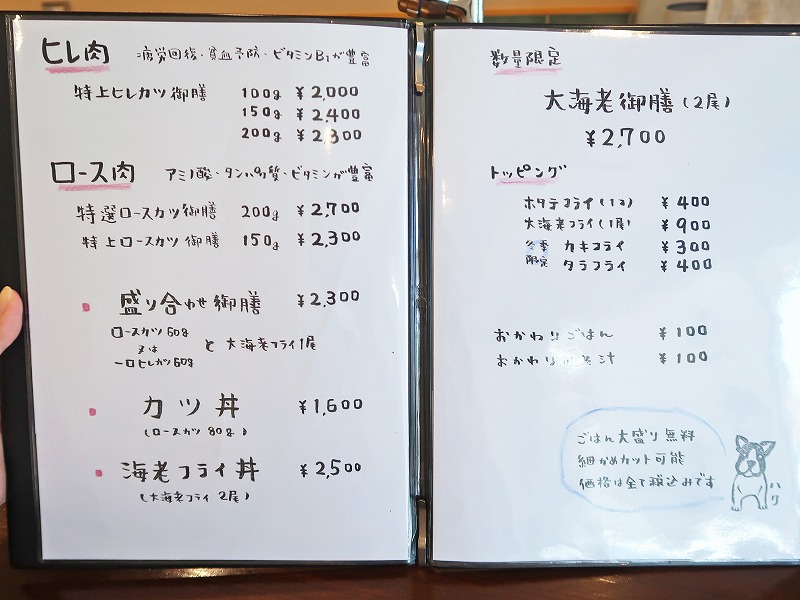 ヒレ肉 疲労回復・貧血予防・ビタミンB1が豊富
特上ヒレカツ御膳 100g ¥2,000
150g ¥2,400
200g ¥2,800
ロース肉 アミノ酸・タンパク質・ビタミンが豊富
特選ロースカツ御膳 200g ¥2,700
特上ロースカツ御膳 150g ¥2,300
盛り合わせ御膳 ¥2,300
ロースカツ60g
又は と 大海老フライ1尾
一口ヒレカツ60g
カツ丼 ¥1,600
(ロースカツ 80g)
海老フライ丼 ¥2,500
(大海老フライ 2尾)
数量限定
大海老御膳(2尾)
¥2,700
トッピング
ホタテフライ(1コ) ¥400
大海老フライ(1尾) ¥900
冬季 カキフライ ¥300
限定 タラフライ ¥400
おかわりごはん ¥100
おかわり 汁 ¥100
ごはん大盛り無料
細かめカット可能
価格は全て税込みです
ハク